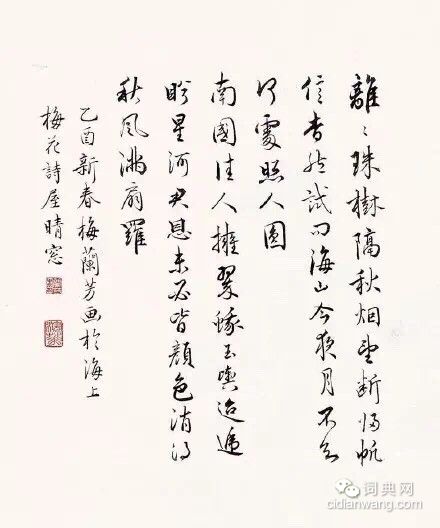 離〻珠樹隔秋烟望斷歸帆
信杳然試問海山今夜月不知
何處照人圓
南國佳人擁翠蛾玉輿迢遞
盼星河君恩未必皆顏色消得
秋風滿扇羅
乙酉新春梅蘭芳画於海上
梅花詩屋晴窓
词典网
cidianwang.com